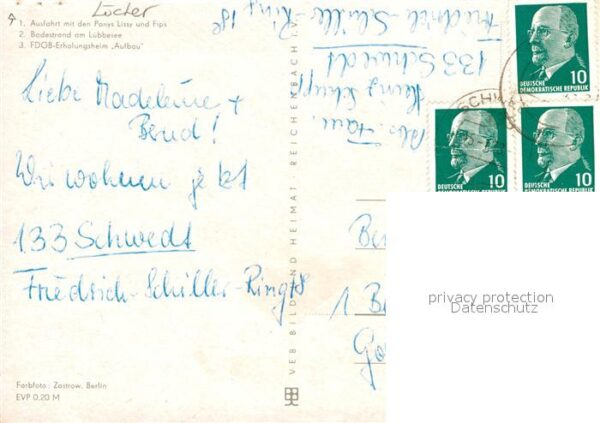 Locher
1. Ausfahrt mit den Ponys Lissy und Fips
2. Badestrand am Lübbesee
3. FDGB-Erholungsheim „Aufbau"
Liebe Madeleine +
Bernd!
Wir wohnen jetzt
133 Schwedt
Friedrich-Schiller-Ring 18
Farbfoto: Zastrow, Berlin
EVP 0,20 M
VEB BILD UND HEIMAT REICHENBACH I.
Abs. Fam.
Heinz
133 Schwedt
Friedrich-Schiller-Ring 18
10
DEUTSCHE
DEMOKRATISCHE REPUBLIK
10
DEUTSCHE
DEMOKRATISCHE REPUBLIK
10
DEUTSCHE
DEMOKRATISCHE REPUBLIK
SCHW
Be
1 Be
Go
privacy protection
Datenschutz